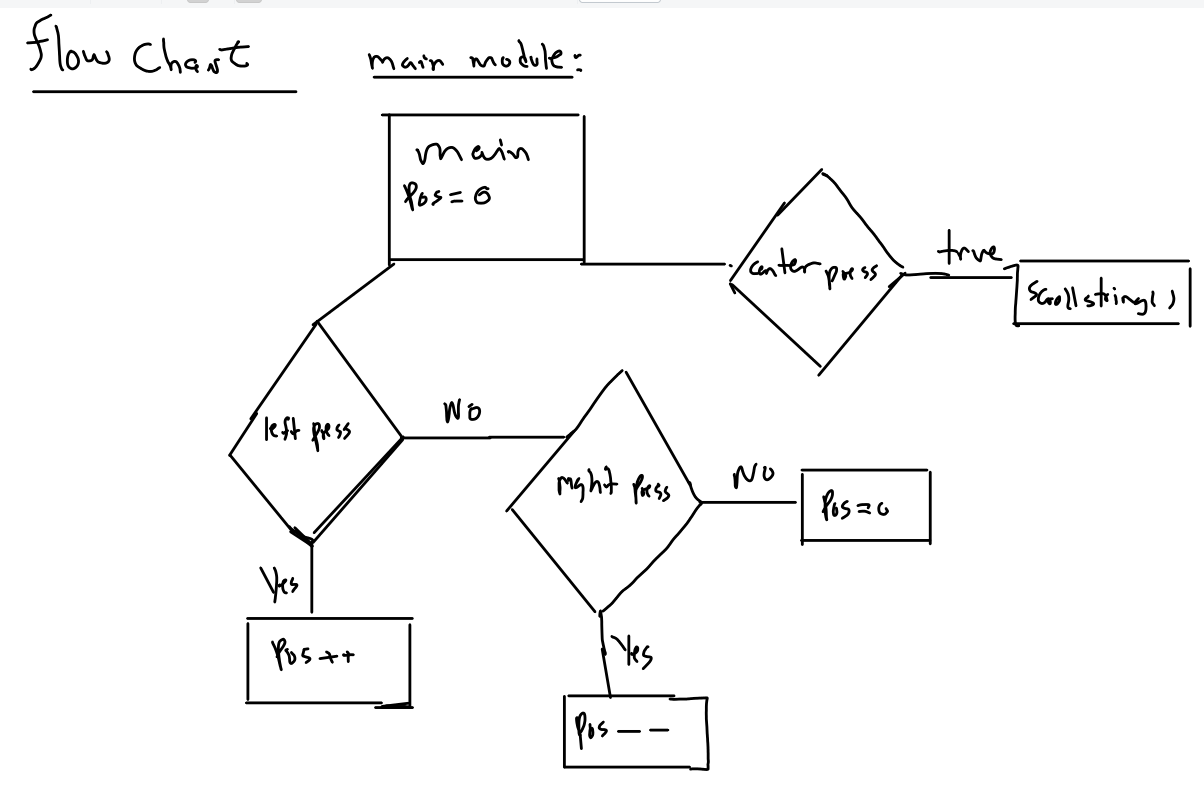 flow chart
main module:
main
Pos = 0
center press
true
scrollstring()
left press
NO
right press
NO
Pos = 0
Yes
Pos ++
Yes
Pos - -